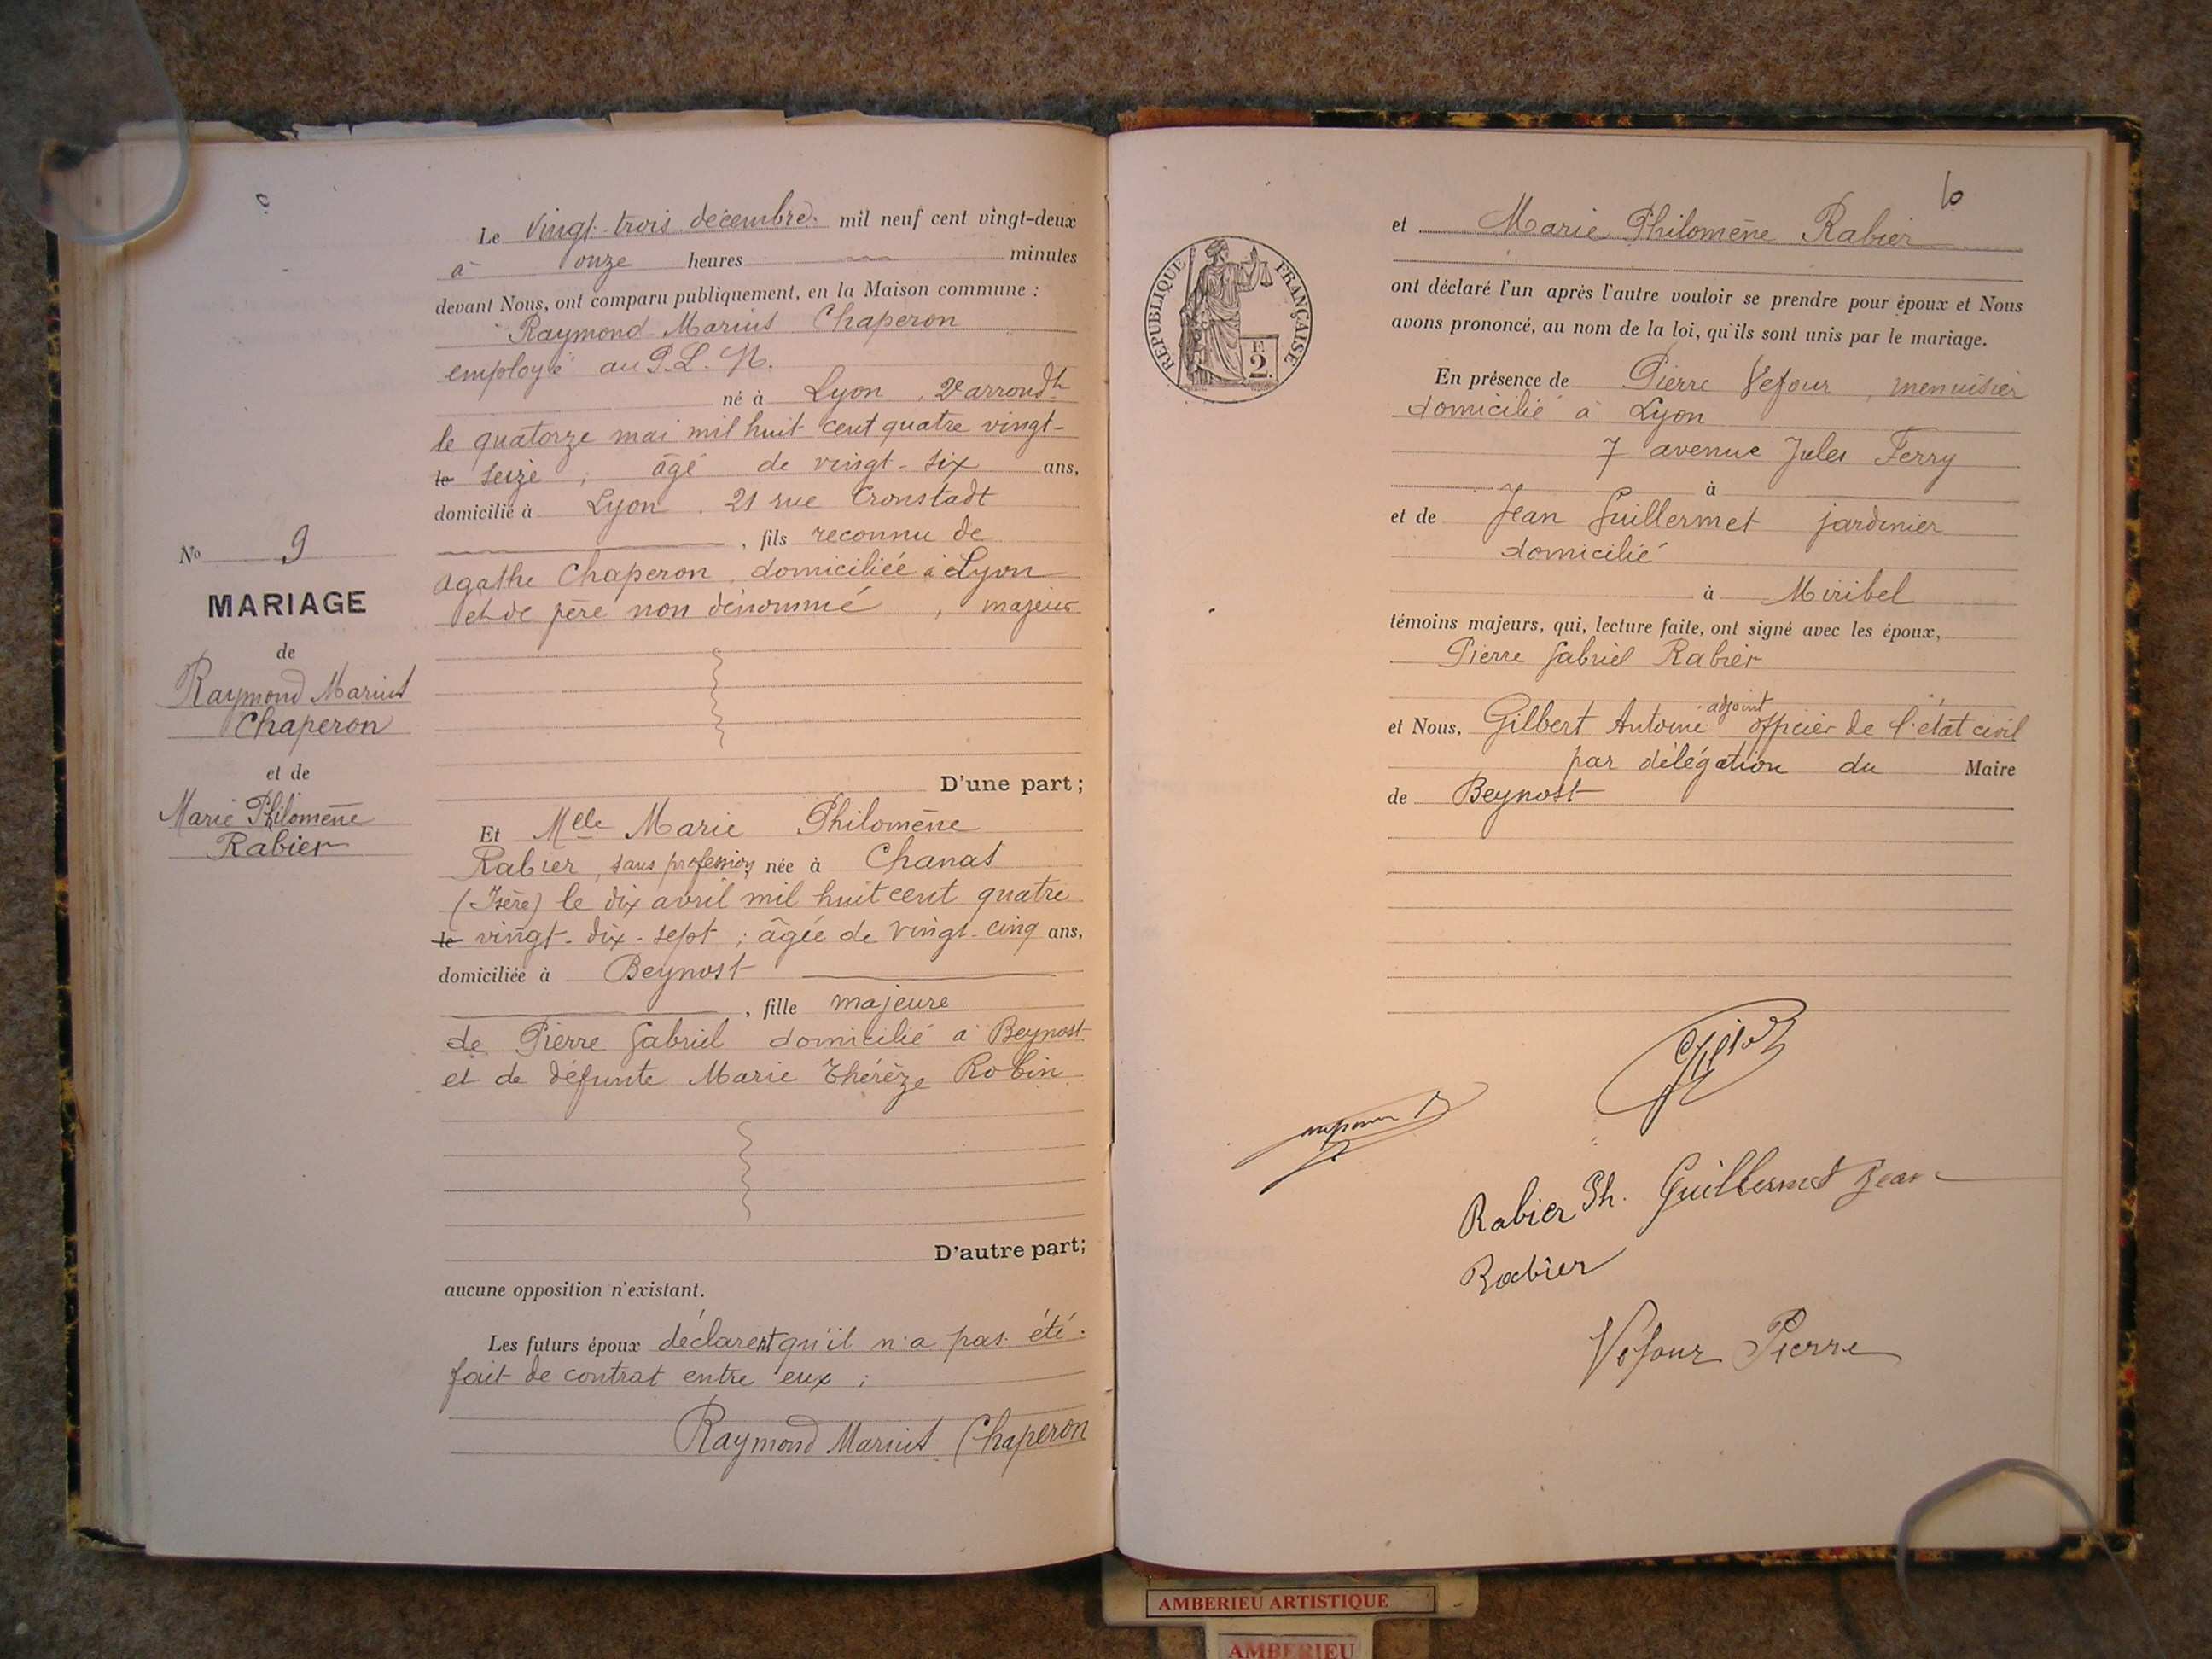 Le vingt-trois décembre mil neuf cent vingt-deux
à onze heures minutes
devant Nous, ont comparu publiquement, en la Maison commune :
Raymond Marius Chaperon
employé au P. L. M.
né à Lyon, 2e arrondt
le quatorze mai mil huit cent quatre vingt-
le seize ; âgé de vingt-six ans,
domicilié à Lyon. 21 rue Cronstadt
, fils reconnu de
Agathe Chaperon, domiciliée à Lyon
et de père non dénommé, majeur
D'une part;
Et Melle Marie Philomène
Rabier, sans profession, née à Chanas
(Isère) le dix avril mil huit cent quatre
le vingt-dix-sept ; âgée de vingt-cinq ans,
domiciliée à Beynost
, fille majeure
de Pierre Gabriel domicilié à Beynost
et de défunte Marie Thérèze Robin
D'autre part;
aucune opposition n'existant.
Les futurs époux déclarent qu'il n'a pas été
fait de contrat entre eux ;
Raymond Marius Chaperon
No 9
MARIAGE
de
Raymond Marius
Chaperon
et de
Marie Philomène
Rabier
6
et Marie Philomène Rabier
ont déclaré l'un après l'autre vouloir se prendre pour époux et Nous
avons prononcé, au nom de la loi, qu'ils sont unis par le mariage.
En présence de Pierre Vefour, menuisier
domicilié à Lyon
7 avenue Jules Ferry
à
et de Jean Guillermet jardinier
domicilié
à Miribel
témoins majeurs, qui, lecture faite, ont signé avec les époux,
Pierre Gabriel Rabier
adjoint
et Nous, Gilbert Antoine officier de l'état civil
par délégation du Maire
de Beynost
RÉPUBLIQUE FRANÇAISE
F.
2.
Rabier Ph. Guillermet Jean
Rabier
Véfour Pierre
AMBERIEU ARTISTIQUE
AMBERIEU